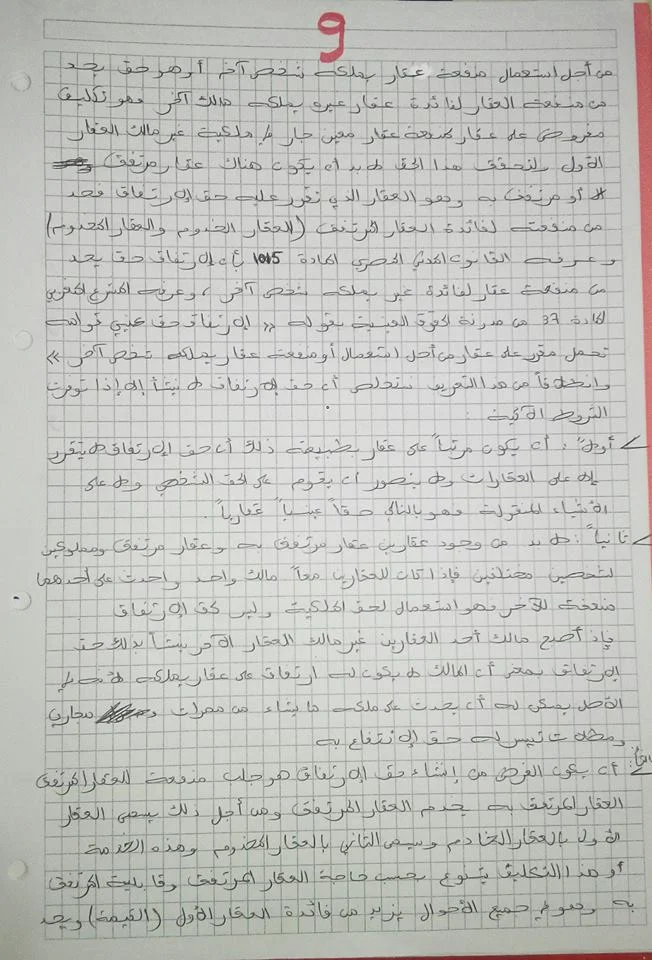 9
من أجل استعمال منفعة عقار يملكه شخص آخر أو هو حق يحد
من منفعة العقار لفائدة عقار غيره يملكه مالك آخر وهو تكليف
مفروض على عقار لمنفعة عقار معين جار في ملكية غير مالك العقار
الأول ولتحقق هذا الحق لا بد أن يكون هناك عقار مرتفق
أو مرتفق به وهو العقار الذي تقرر عليه حق الإرتفاق فحد
من منفعته لفائدة العقار المرتفق (العقار الخدوم والعقار المخدوم)
وعرفه القانون المدني المصري المادة 1015 أن الإرتفاق حق يحد
من منفعة عقار لفائدة غير يملكه شخص آخر، وعرفه المشرع المغربي
المادة 37 من مدونة الحقوق العينية بقوله « الإرتفاق حق عيني قوامه
تحمل مقرر على عقار من أجل استعمال أو منفعة عقار يملكه شخص آخر »
وانطلاقاً من هذا التعريف نستخلص أن حق الإرتفاق لا ينشأ إلا إذا توفرت
الشروط الآتية :
أولا : أن يكون مرتباً على عقار بطبيعته ذلك أن حق الإرتفاق لا يتقرر
إلا على العقارات ولا يتصور أن يقوم على الحق الشخصي ولا على
الأشياء المنقولة وهو بالتالي حقاً عينياً عقارياً.
ثانياً : لا بد من وجود عقارين عقار مرتفق به وعقار مرتفق ومملوكين
لشخصين مختلفين فإذا كان للعقارين معاً مالك واحد واحدث على أحدهما
منفعة للآخر فهو استعمال لحق الملكية وليس لحق الإرتفاق
فإذ أصبح مالك أحد العقارين غير مالك العقار الآخر ينشأ بذلك حق
الإرتفاق بمعنى أن المالك لا يكون له ارتفاق على عقار يملكه لأنه في
الأصل يمكن له أن يحدث على ملكه ما يشاء من ممرات و مجاري
ومطلات تيس له حق الإنتفاع به
: أن يكون الغرض من إنشاء حق الإرتفاق هو جلب منفعة للعقار المرتفق
العقار المرتفق به يخدم العقار المرتفق ومن أجل ذلك يسمى العقار
الأول بالعقار الخادم ويسمى الثاني بالعقار المخدوم وهذه الخدمة
أو هذا التكليف يتنوع بحسب حاجة العقار المرتفق وقابلية المرتفق
به وهو في جميع الأحوال يزيد من فائدة العقار الأول (القيمة) ويحد